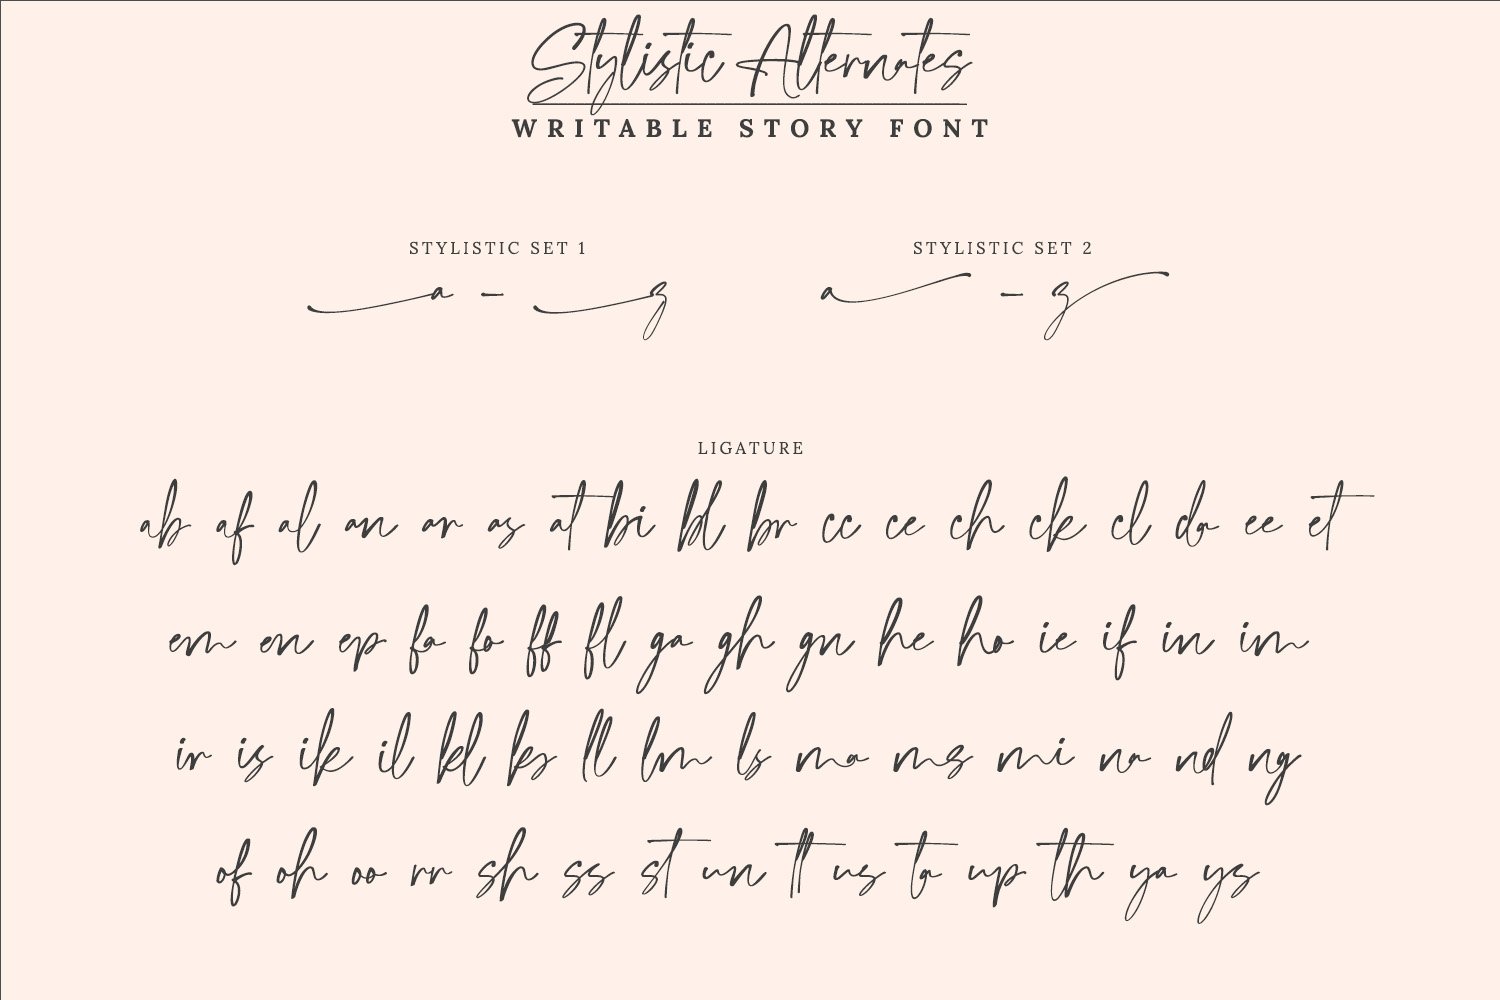 Stylistic Alternates
WRITABLE STORY FONT
STYLISTIC SET 1
a - z
STYLISTIC SET 2
a - z
LIGATURE
ab af al an ar as at bi bl br cc ce ch ck cl da ee et
em en ep fa fo ff fl ga gh gn he ho ie if in im
ir is ik il kl ks ll lm ls ma ms mi na nd ng
of oh oo rr sh ss st un tt us ta up th ya ys